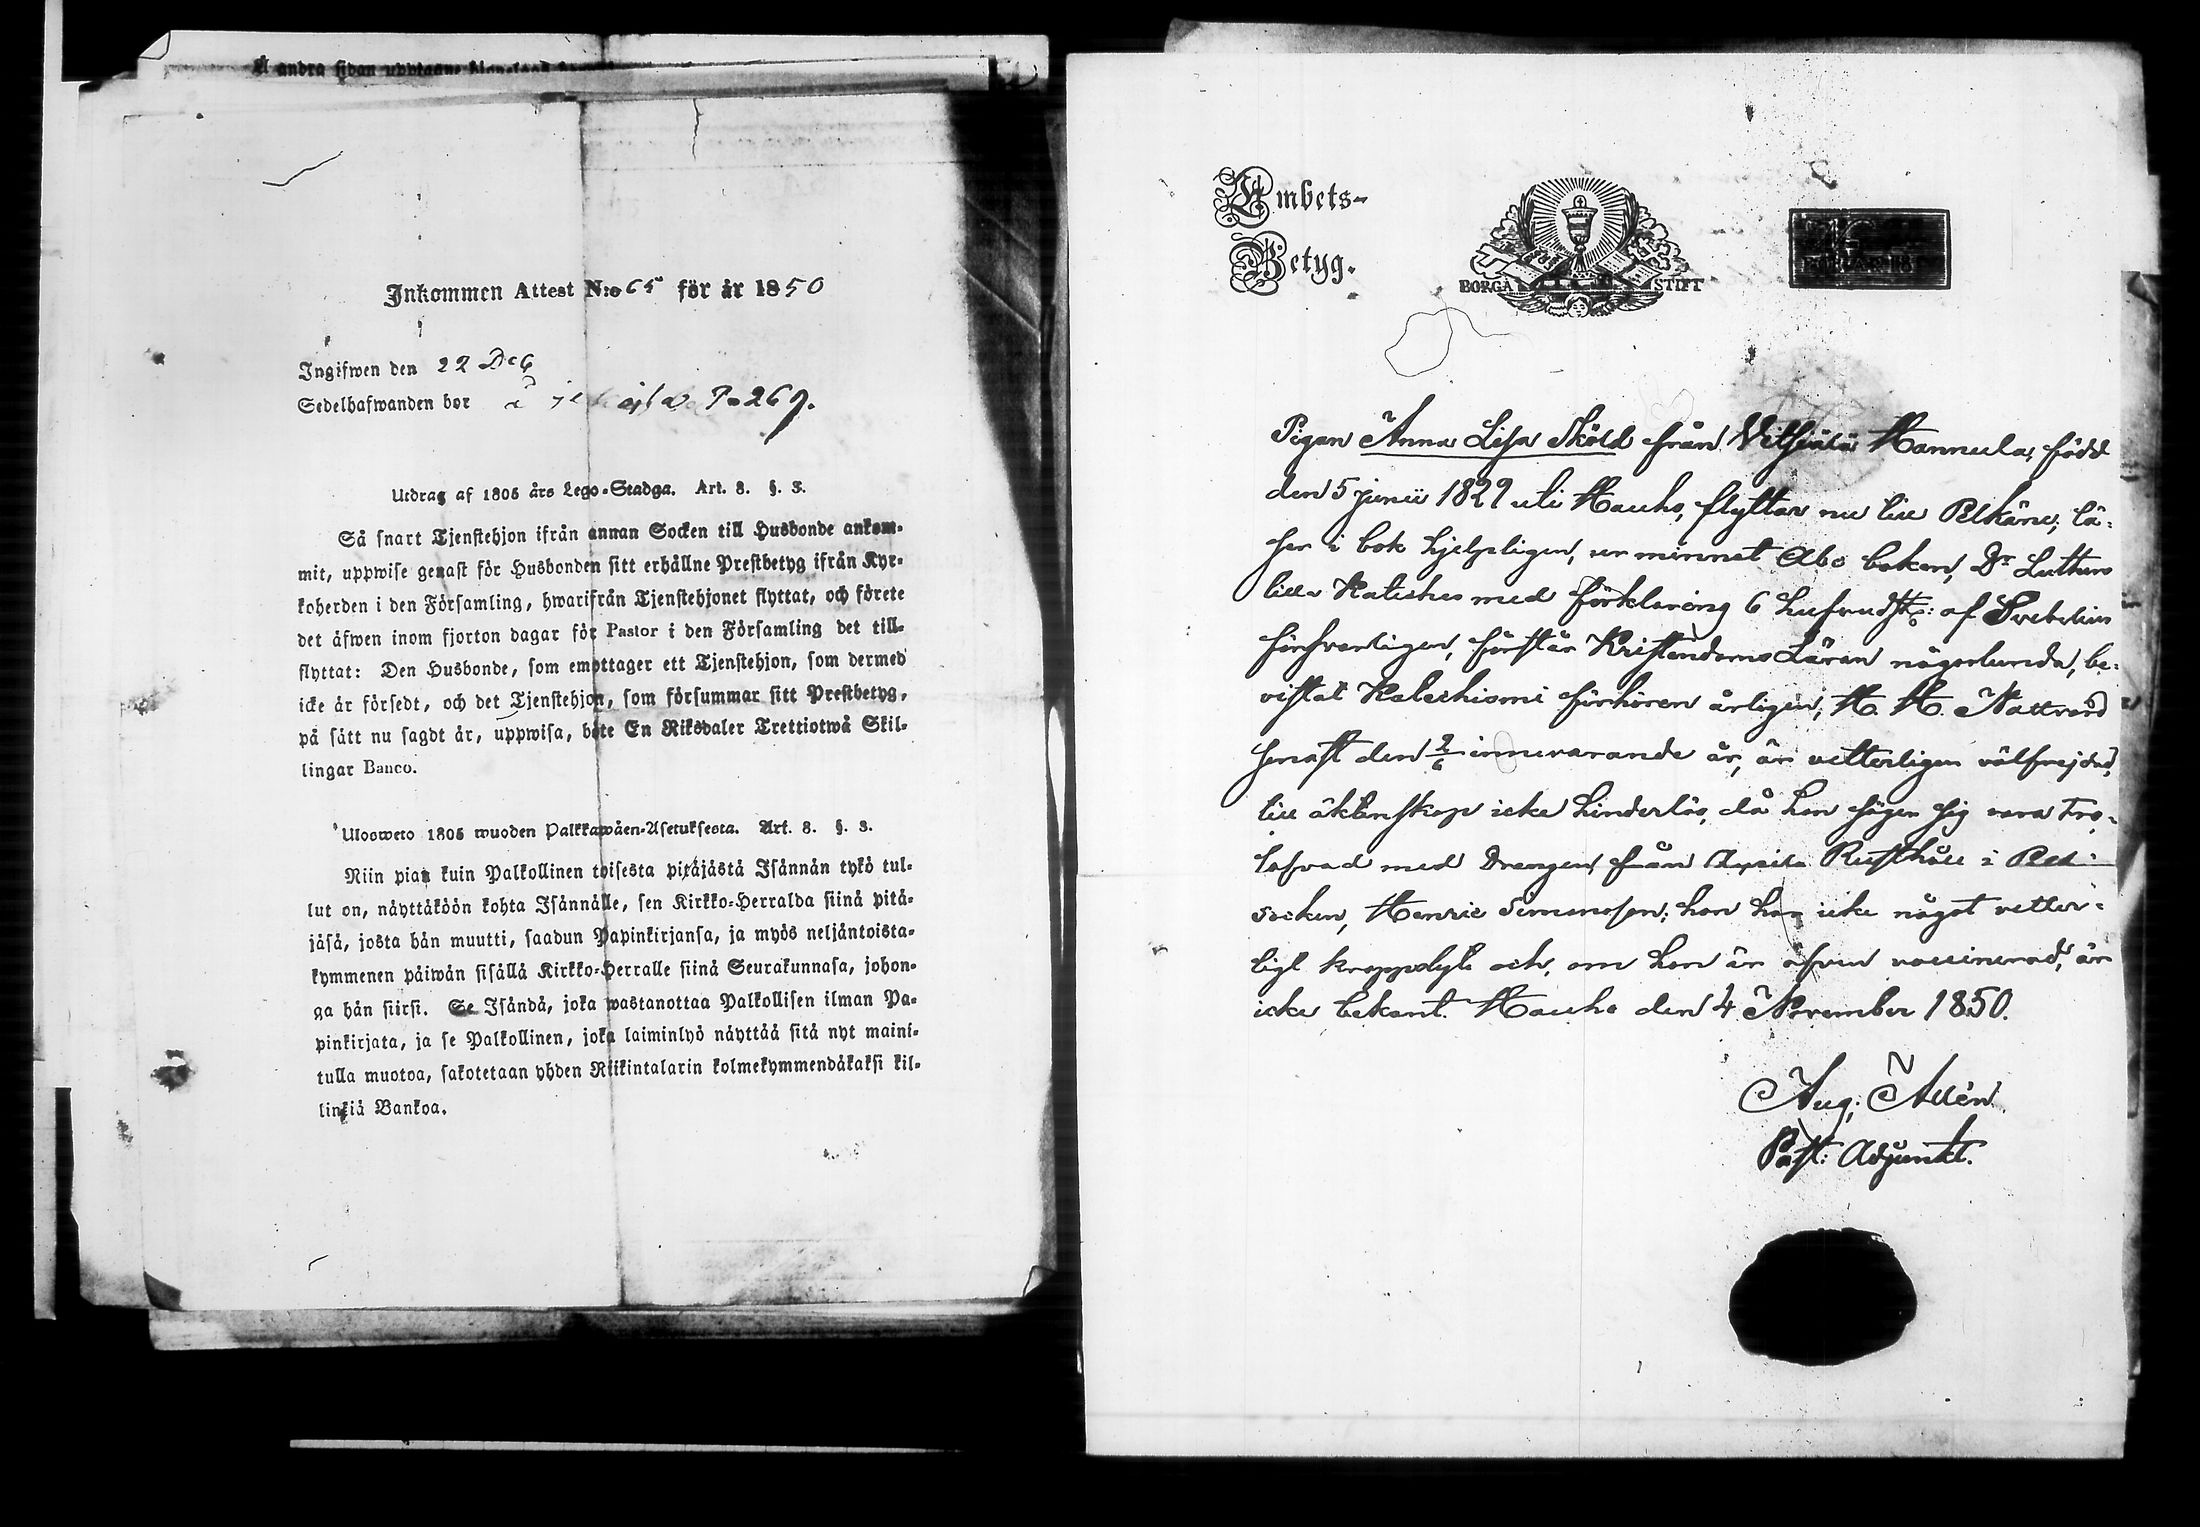 Å andra sidan upptagne
Inkommen Attest N:o 65 för år 1850
Ingifwen den 22 Dec
Sedelhafwanden bor P. 269.
Utdrag af 1805 års Lego-Stadga. Art. 8. §. 3.
Så snart Tjenstehjon ifrån annan Socken till Husbonde ankom-
mit, uppwise genast för Husbonden sitt erhållne Prestbetyg ifrån Kyr-
koherden i den Församling, hwarifrån Tjenstehjonet flyttat, och förete
det äfwen inom fjorton dagar för Pastor i den Församling det till-
flyttat: Den Husbonde, som emottager ett Tjenstehjon, som dermed
icke är försedt, och det Tjenstehjon, som försummar sitt Prestbetyg,
på sätt nu sagdt är, uppwisa, böte En Riksdaler Trettiotwå Skil-
lingar Banco.
Ulosweto 1805 wuoden Palkkawäen-Asetuksesta. Art. 8. §. 3.
Niin pian kuin Palkollinen toisesta pitäjästä Isännän tykö tul-
lut on, näyttäköön kohta Isännälle, sen Kirkko-Herralda siinä pitä-
jäsä, josta hän muutti, saadun Papinkirjansa, ja myös neljäntoista-
kymmenen päiwän sisällä Kirkko-Herralle siinä Seurakunnasa, johon-
ga hän siirsi. Se Isändä, joka wastanottaa Palkollisen ilman Pa-
pinkirjata, ja se Palkollinen, joka laiminlyö näyttää sitä nyt maini-
tulla muotoa, sakotetaan yhden Riikintalarin kolmekymmendäkaksi kil-
linkiä Bankoa.
Embets-
Betyg.
BORGÅ STIFT
Pigan Anna Lisa Sköld från Vitsiälä Hannula, född
den 5 junii 1829 uti Hauho, flyttar nu till Pelkäne; lä-
ser i bok hjelpligen, ur minnet Abc boken, Dr Luthers
lilla Kateches med förklaring 6 hufvudst: af Svebelius
försvarligen, förstår Kristendoms Läran någorlunda, be-
vistat Katechismi förhören årligen, H. H. Nattvard
senast den 2/6 innevarande år, är vetterligen välfrejdad,
till äktenskap icke hinderlös, då hon säger sig vara tro-
lofvad med Drengen från Rusthåll i Pel-
socken, Henric Simonsson; hon har icke något vetter-
ligt kroppslyte och, om hon är äfven vaccinerad, är
icke bekant. Hauho den 4 November 1850.
Aug: Allén.
Past: Adjunkt.